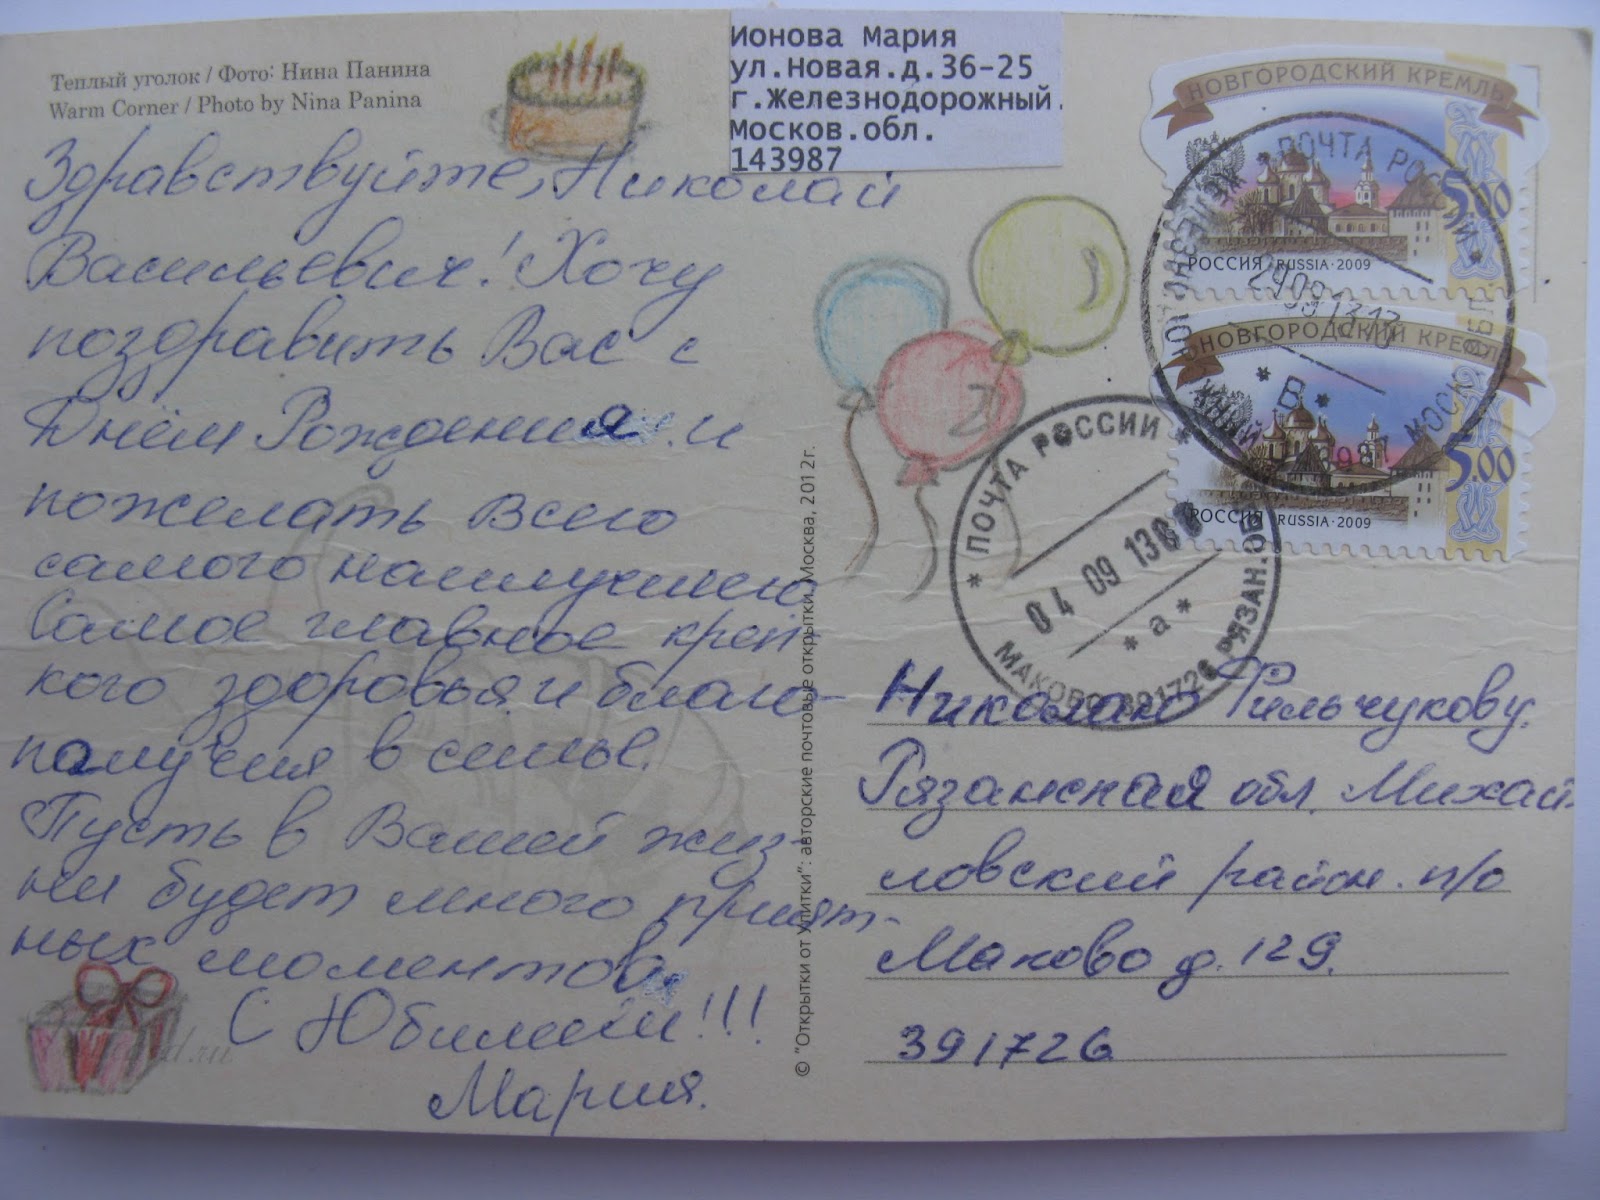 Теплый уголок / Фото: Нина Панина
Warm Corner / Photo by Nina Panina
Здравствуйте, Николай
Васильевич! Хочу
поздравить Вас с
Днём Рождения и
пожелать Всего
самого наилучшего
Самое главное креп-
кого здоровья и благо-
получия в семье.
Пусть в Вашей жиз-
ни будет много прият-
ных моментов.
С Юбилеем!!!
Мария.
Ионова Мария
ул.Новая.д.36-25
г.Железнодорожный.
Москов.обл.
143987
© "Открытки от Улитки": авторские почтовые открытки. Москва, 2012г.
НОВГОРОДСКИЙ КРЕМЛЬ
5.00
РОССИЯ RUSSIA·2009
НОВГОРОДСКИЙ КРЕМЛЬ
5.00
РОССИЯ RUSSIA·2009
ПОЧТА РОССИИ
В
ПОЧТА РОССИИ
04 09 13
* а *
МАКОВО 391726 РЯЗАН.ОБ
Николаю Фильчукову.
Рязанская обл. Михай-
ловский район. п/о
Маково д. 129.
391726